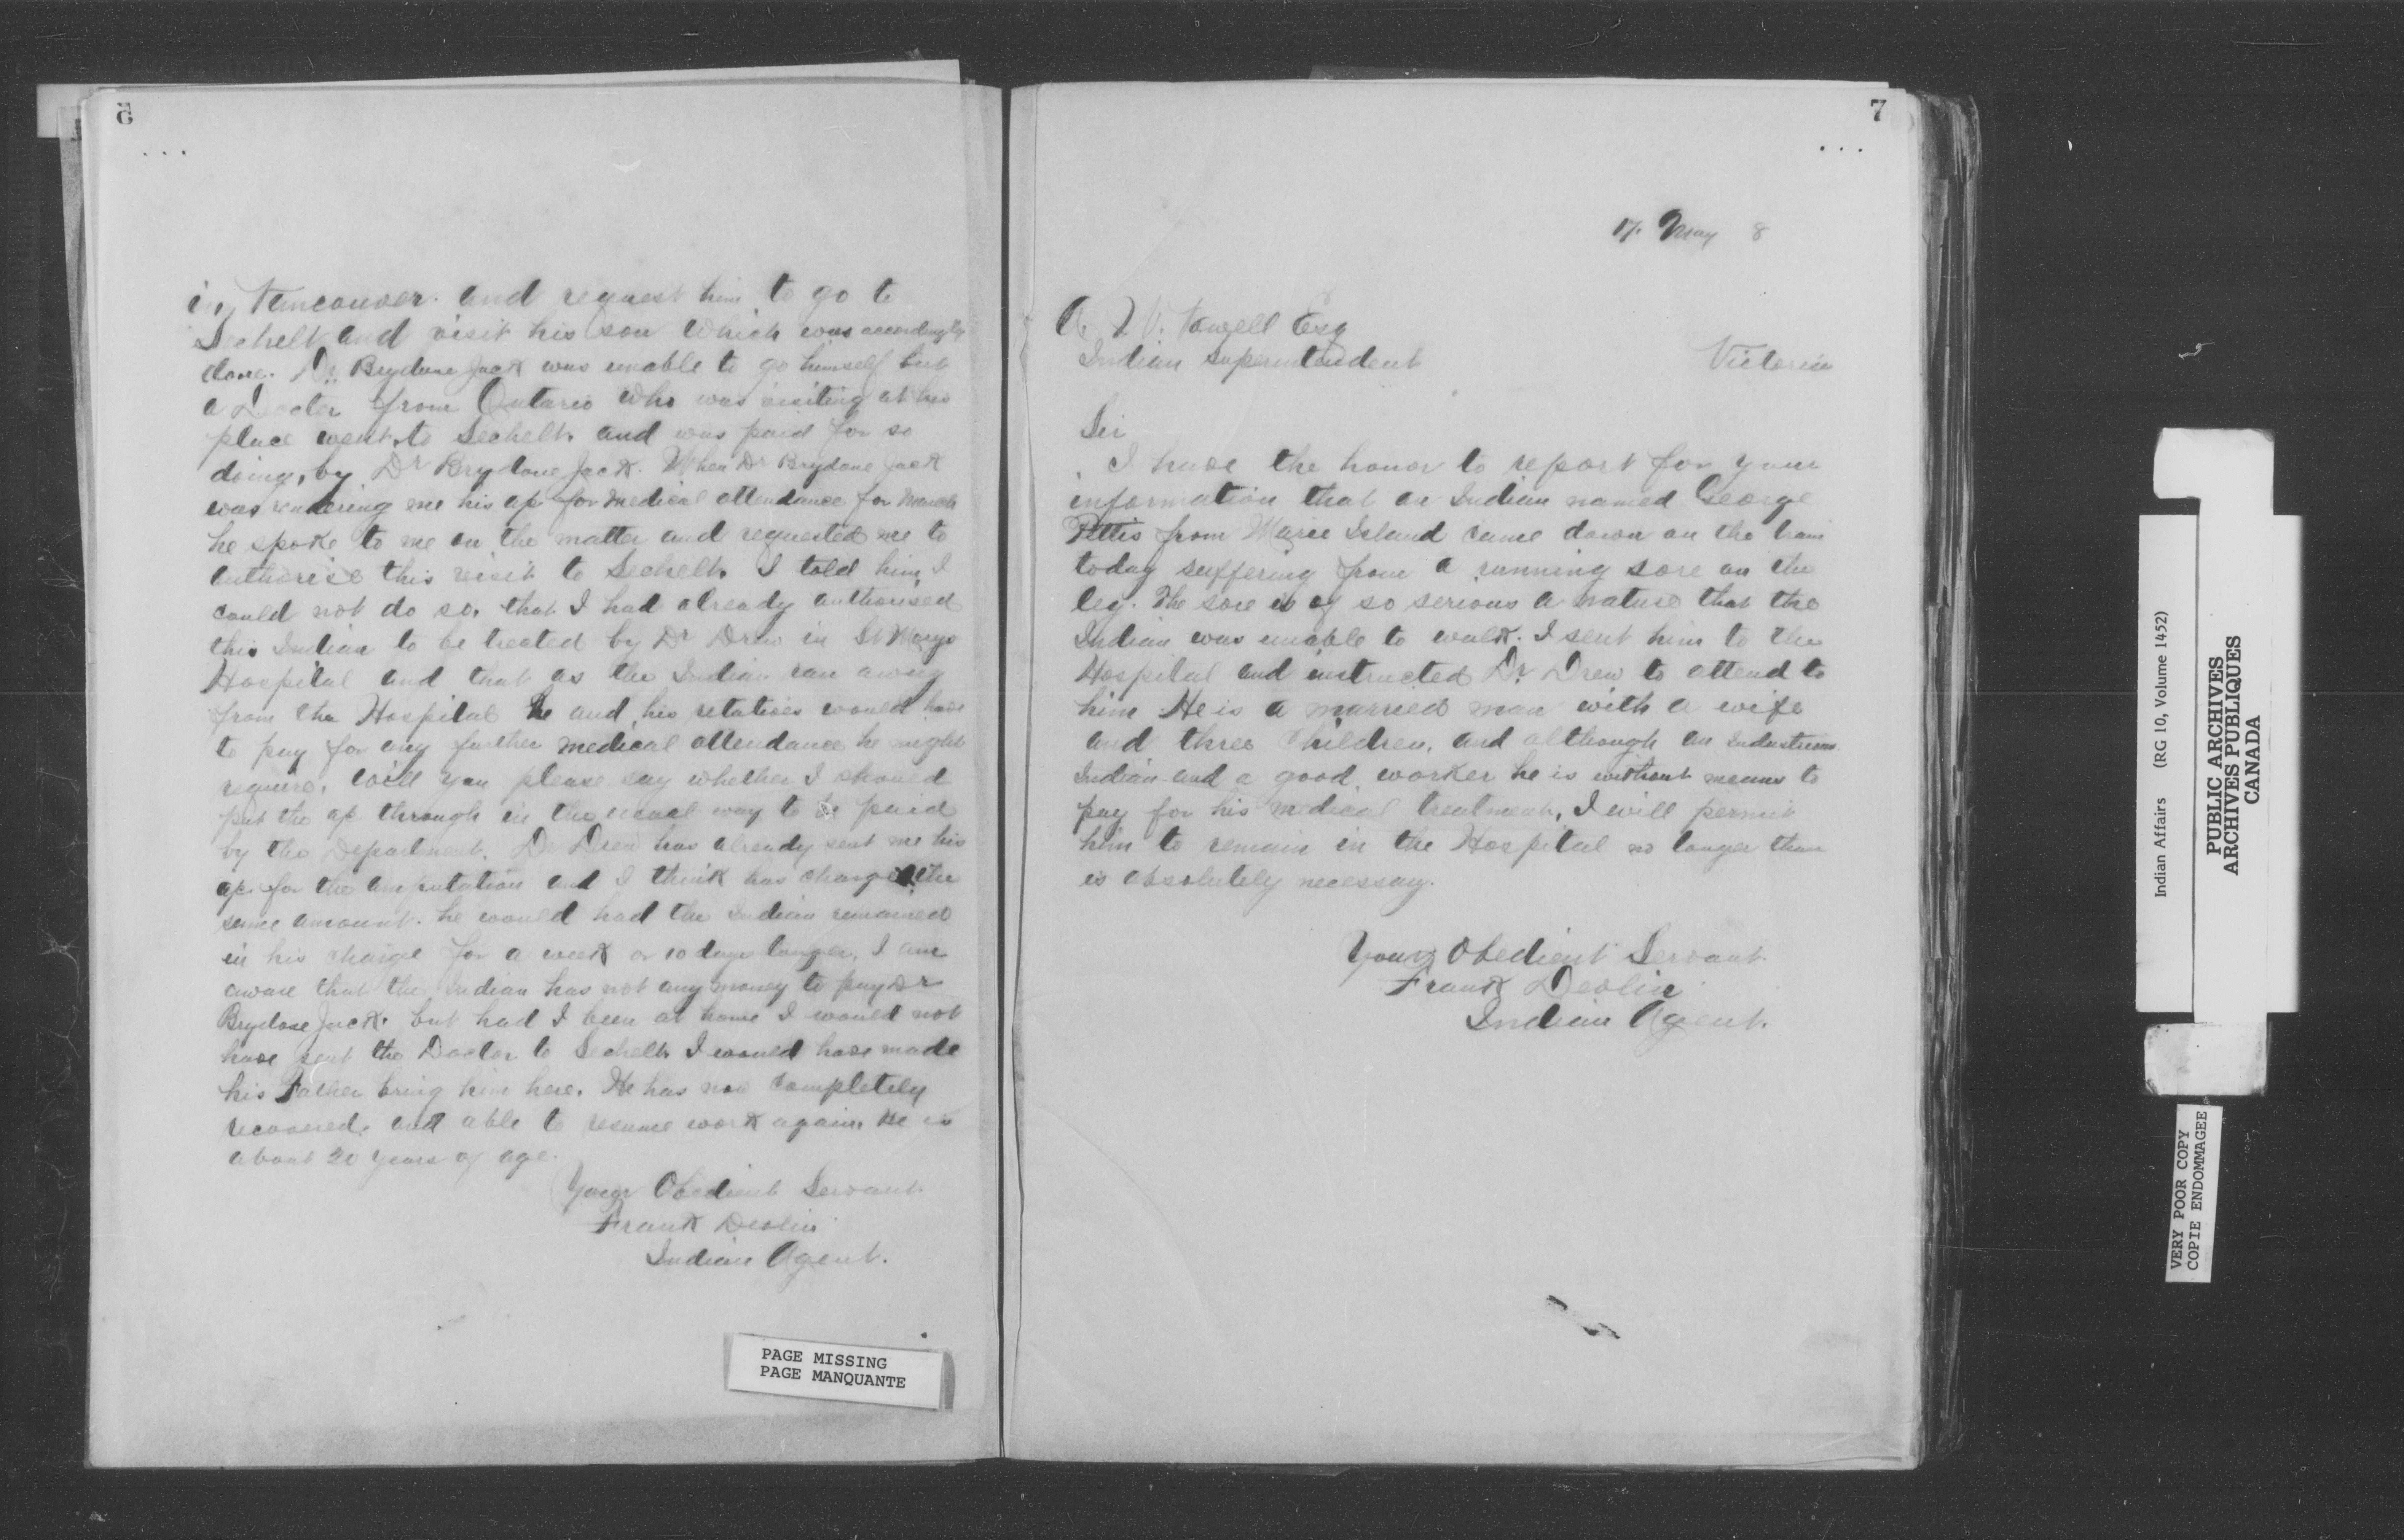 6
...
in Vancouver. and request him to go to
Sechelt and visit his son which was accordingly
done. Dr. Brydone Jack was unable to go himself but
a Doctor from Ontario who was visiting at his
place went to Sechelt. and was paid for so
doing, by Dr Brydone Jack. When Dr Brydone Jack
was rendering me his a/c for medical attendance for March
he spoke to me on the matter and requested me to
authorise this visit to Sechelt. I told him I
could not do so, that I had already authorised
this Indian to be treated by Dr Drew in St Marys
Hospital and that as the Indian ran away
from the Hospital he and his relatives would have
to pay for any further medical attendance he might
require. Will you please say whether I should
put the a/c through in the usual way to be paid
by the Department. Dr Drew has already sent me his
a/c for the amputation and I think has charged the
same amount. he would had the Indian remained
in his charge for a week or 10 days longer. I am
aware that the Indian has not any money to pay Dr
Brydone Jack. but had I been at home I would not
have sent the Doctor to Sechelt I would have made
his Father bring him here. He has now completely
recovered, and able to resume work again. He is
about 20 years of age.
Your Obedient Servant
Frank Devlin
Indian Agent.
PAGE MISSING
PAGE MANQUANTE
7
...
17. May 8
A. W. Vowell Esq
Indian Superintendent Victoria
Sir
I have the honor to report for your
information that an Indian named George
from Island came down on the train
today suffering from a running sore on the
leg. The sore is of so serious a nature that the
Indian was unable to walk. I sent him to the
Hospital and instructed Dr. Drew to attend to
him He is a married man with a wife
and three children, and although an Industrious
Indian and a good worker he is without means to
pay for his medical treatment, I will permit
him to remain in the Hospital no longer than
is absolutely necessary.
Your Obedient Servant
Frank Devlin
Indian Agent.
Indian Affairs (RG 10, Volume 1452)
PUBLIC ARCHIVES
ARCHIVES PUBLIQUES
CANADA
VERY POOR COPY
COPIE ENDOMMAGEE